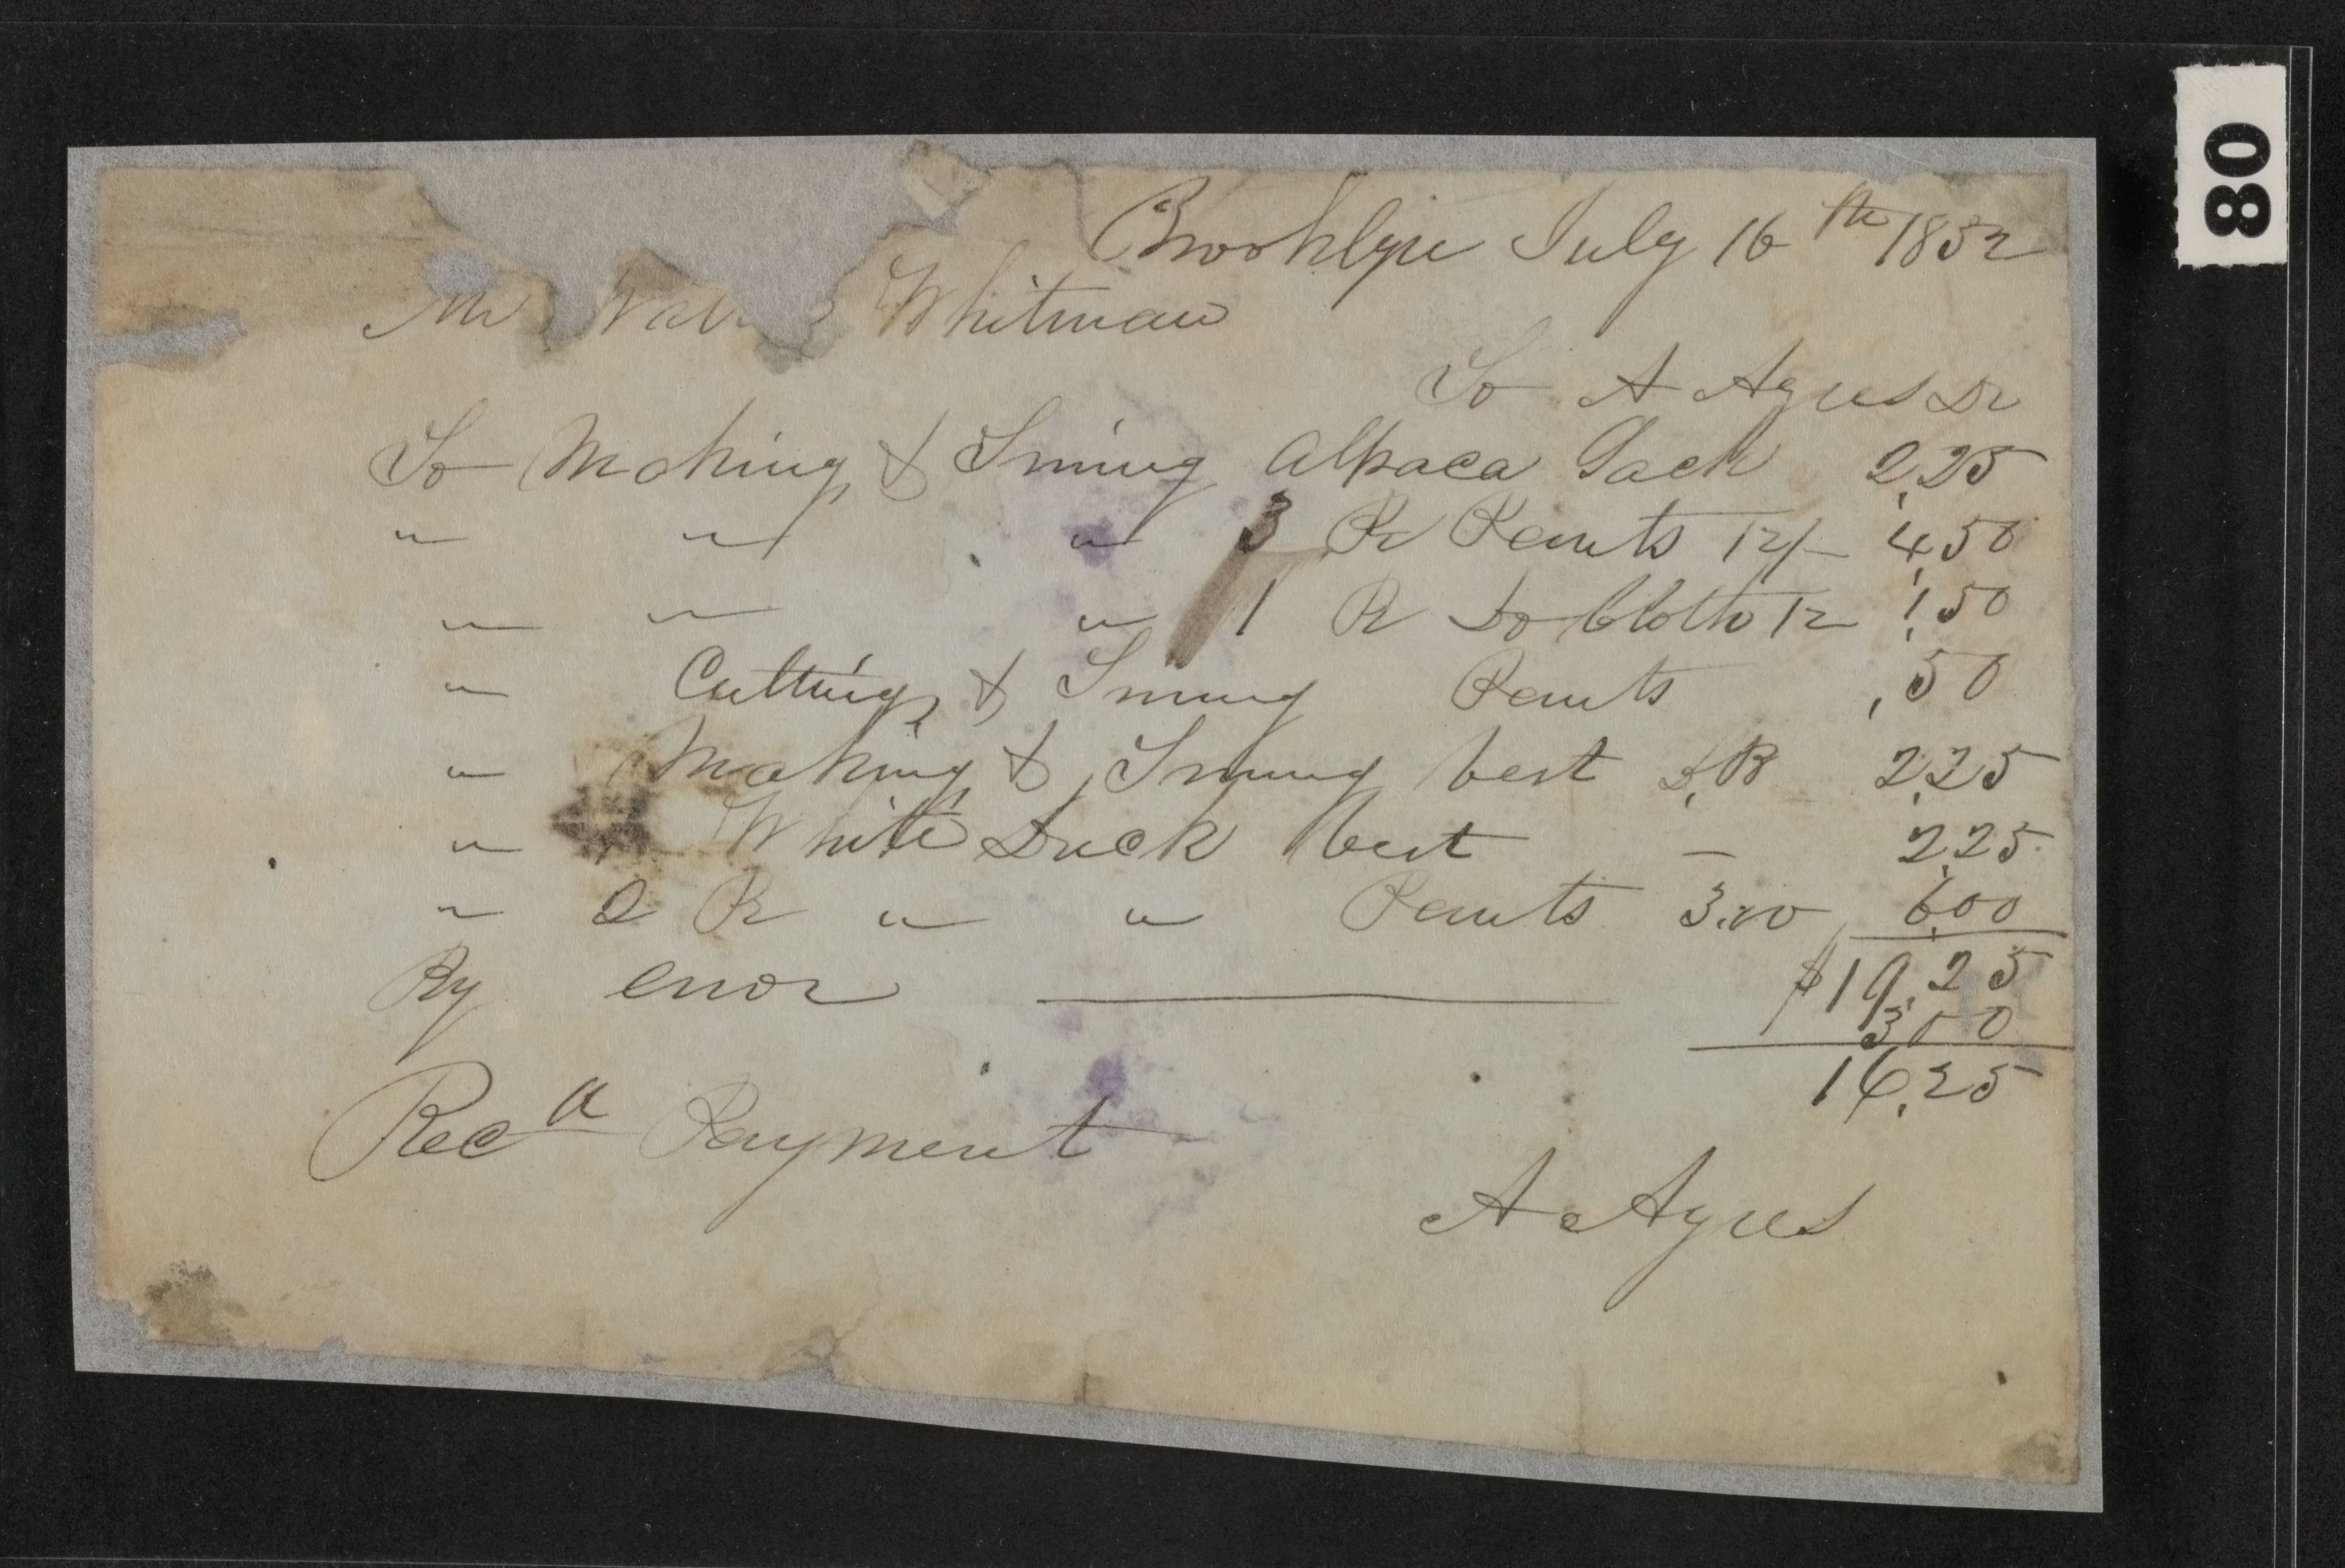 Brooklyn July 16th 1852
Mr Walter Whitman
To A Ayres Dr
To Making & Triming Alpaca Sack 2,25
" " " 3 Pr Pants 12/- 4,50
" " " 1 Pr Do Cloth 12 1,50
" Cutting & Triming Pants ,50
" Making & Triming Vest D,B 2,25
" White Duck Vest — 2,25
" 2 Pr " " Pants 3.00 6,00
$19,25
By error 3,00
16,25
Recd Payment
A Ayres
80